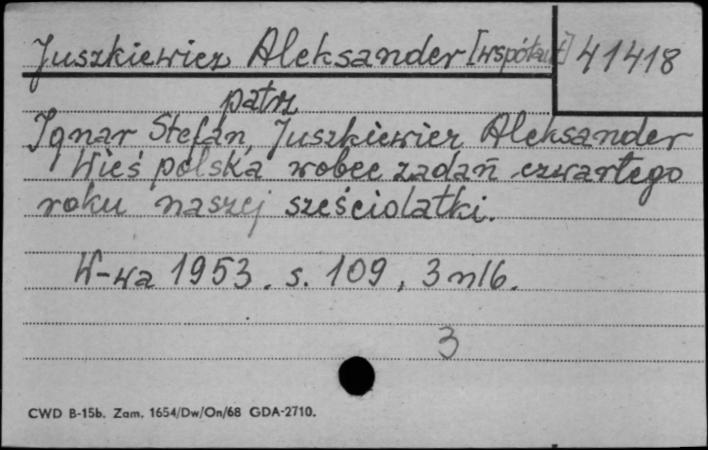 Juszkiewicz Aleksander [współaut]
41418
patrz
Ignar Stefan, Juszkiewicz Aleksander
Wieś polska wobec zadań czwartego
roku naszej sześciolatki.
W-wa 1953. s. 109, 3 nlb.
3
CWD B-15b. Zam. 1654/Dw/On/68 GDA-2710.